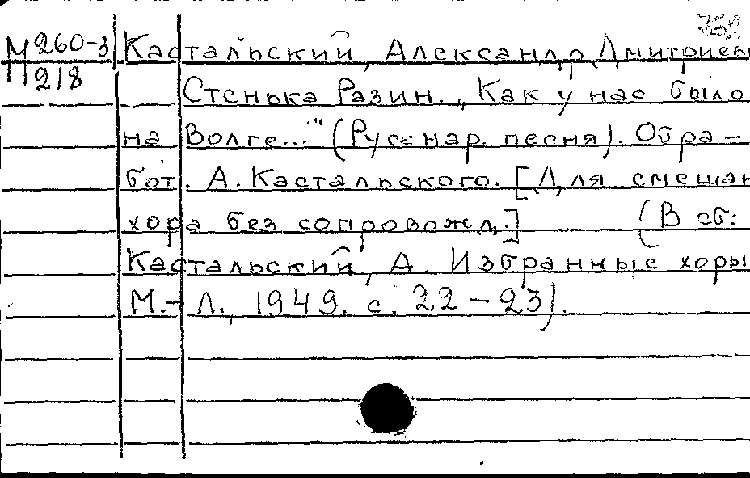 М 260-3 Кастальский, Александр Дмитриев
П 218
Стенька Разин. „Как у нас было
на Волге..." (Рус. нар. песня). Обра-
бот. А. Кастальского. [Для смешан
хора без сопровожд.] (В сб:
Кастальский, А. Избранные хоры
М.-Л., 1949. с. 22-23).